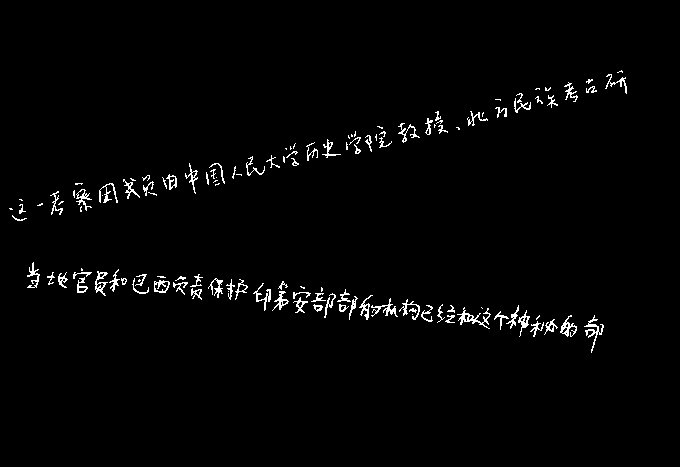 这一考察团成员由中国人民大学历史学院教授、北方民族考古研
当地官员和巴西负责保护印第安部部的机构已经和这个神秘的部